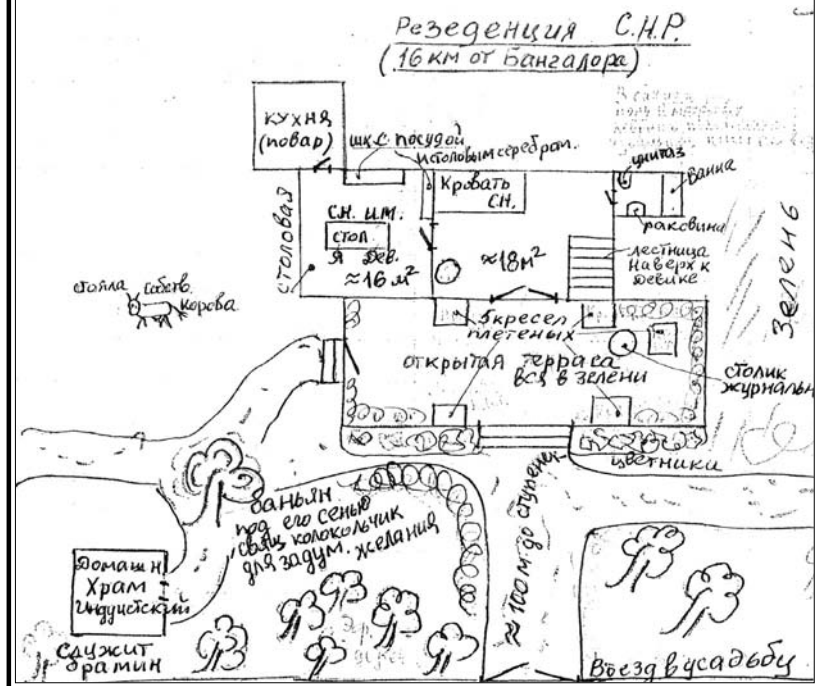 Резеденция С.Н.Р.
(16 км от Бангалора)
кухня
(повар)
шк. с посудой
и столовым серебром.
столовая
С.Н. и М.
стол
Я Дев.
≈16 м²
Кровать
С.Н.
≈18м²
унитаз
Ванна
раковина
лестница
наверх к
Девике
Зелень
стояла собств.
корова.
5 кресел
плетеных
открытая терраса
вся в зелени
столик
журнальн
цветники
баньян
под его сенью
свящ колокольчик
для задум. желания
≈100м. до ступенек
Домашн
Храм
Индуистский
служит
брамин
Въезд в усадьбу